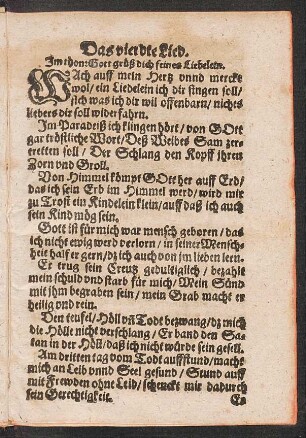 Das vierdte Lied.
Im thon: Gott grüß dich feines Liebelein.
WAch auff mein Hertz vnnd mercke
wol / ein Liedelein ich dir singen soll /
sich was ich dir wil offenbarn / nichts
liebers dir soll widerfahrn.
Im Paradeiß ich klingen hört / von GOtt
gar tröstliche Wort / Deß Weibes Sam zer-
trettten soll / Der Schlang den Kopff ihren
Zorn vnd Groll.
Von Himmel kömpt GOtt her auff Erd /
das ich sein Erb im Himmel werd / wird mir
zu Trost ein Kindelein klein / auff daß ich auch
sein Kind mög sein.
Gott ist für mich war mensch geborn / das
ich nicht ewig werd verlorn / in seiner Mensch-
heit half er gern / dz ich auch von jm lieben lern.
Er trug sein Creutz gedultiglich / bezahlt
mein schuld vnd starb für mich / Mein Sünd
mit ihm begraben sein / mein Grab macht er
heilig vnd rein.
Den teufel / Höll vñ Todt bezwang / dz mich
die Hölle nicht verschlang / Er band den Sa-
tan in der Höll / daß ich nicht würde sein gesell.
Am dritten tag vom Todt auffstund / macht
mich an Leib vnnd Seel gesund / Stund auff
mit Frewden ohne Leid / schenckt mir dadurch
sein Gerechtigkeit.
Er